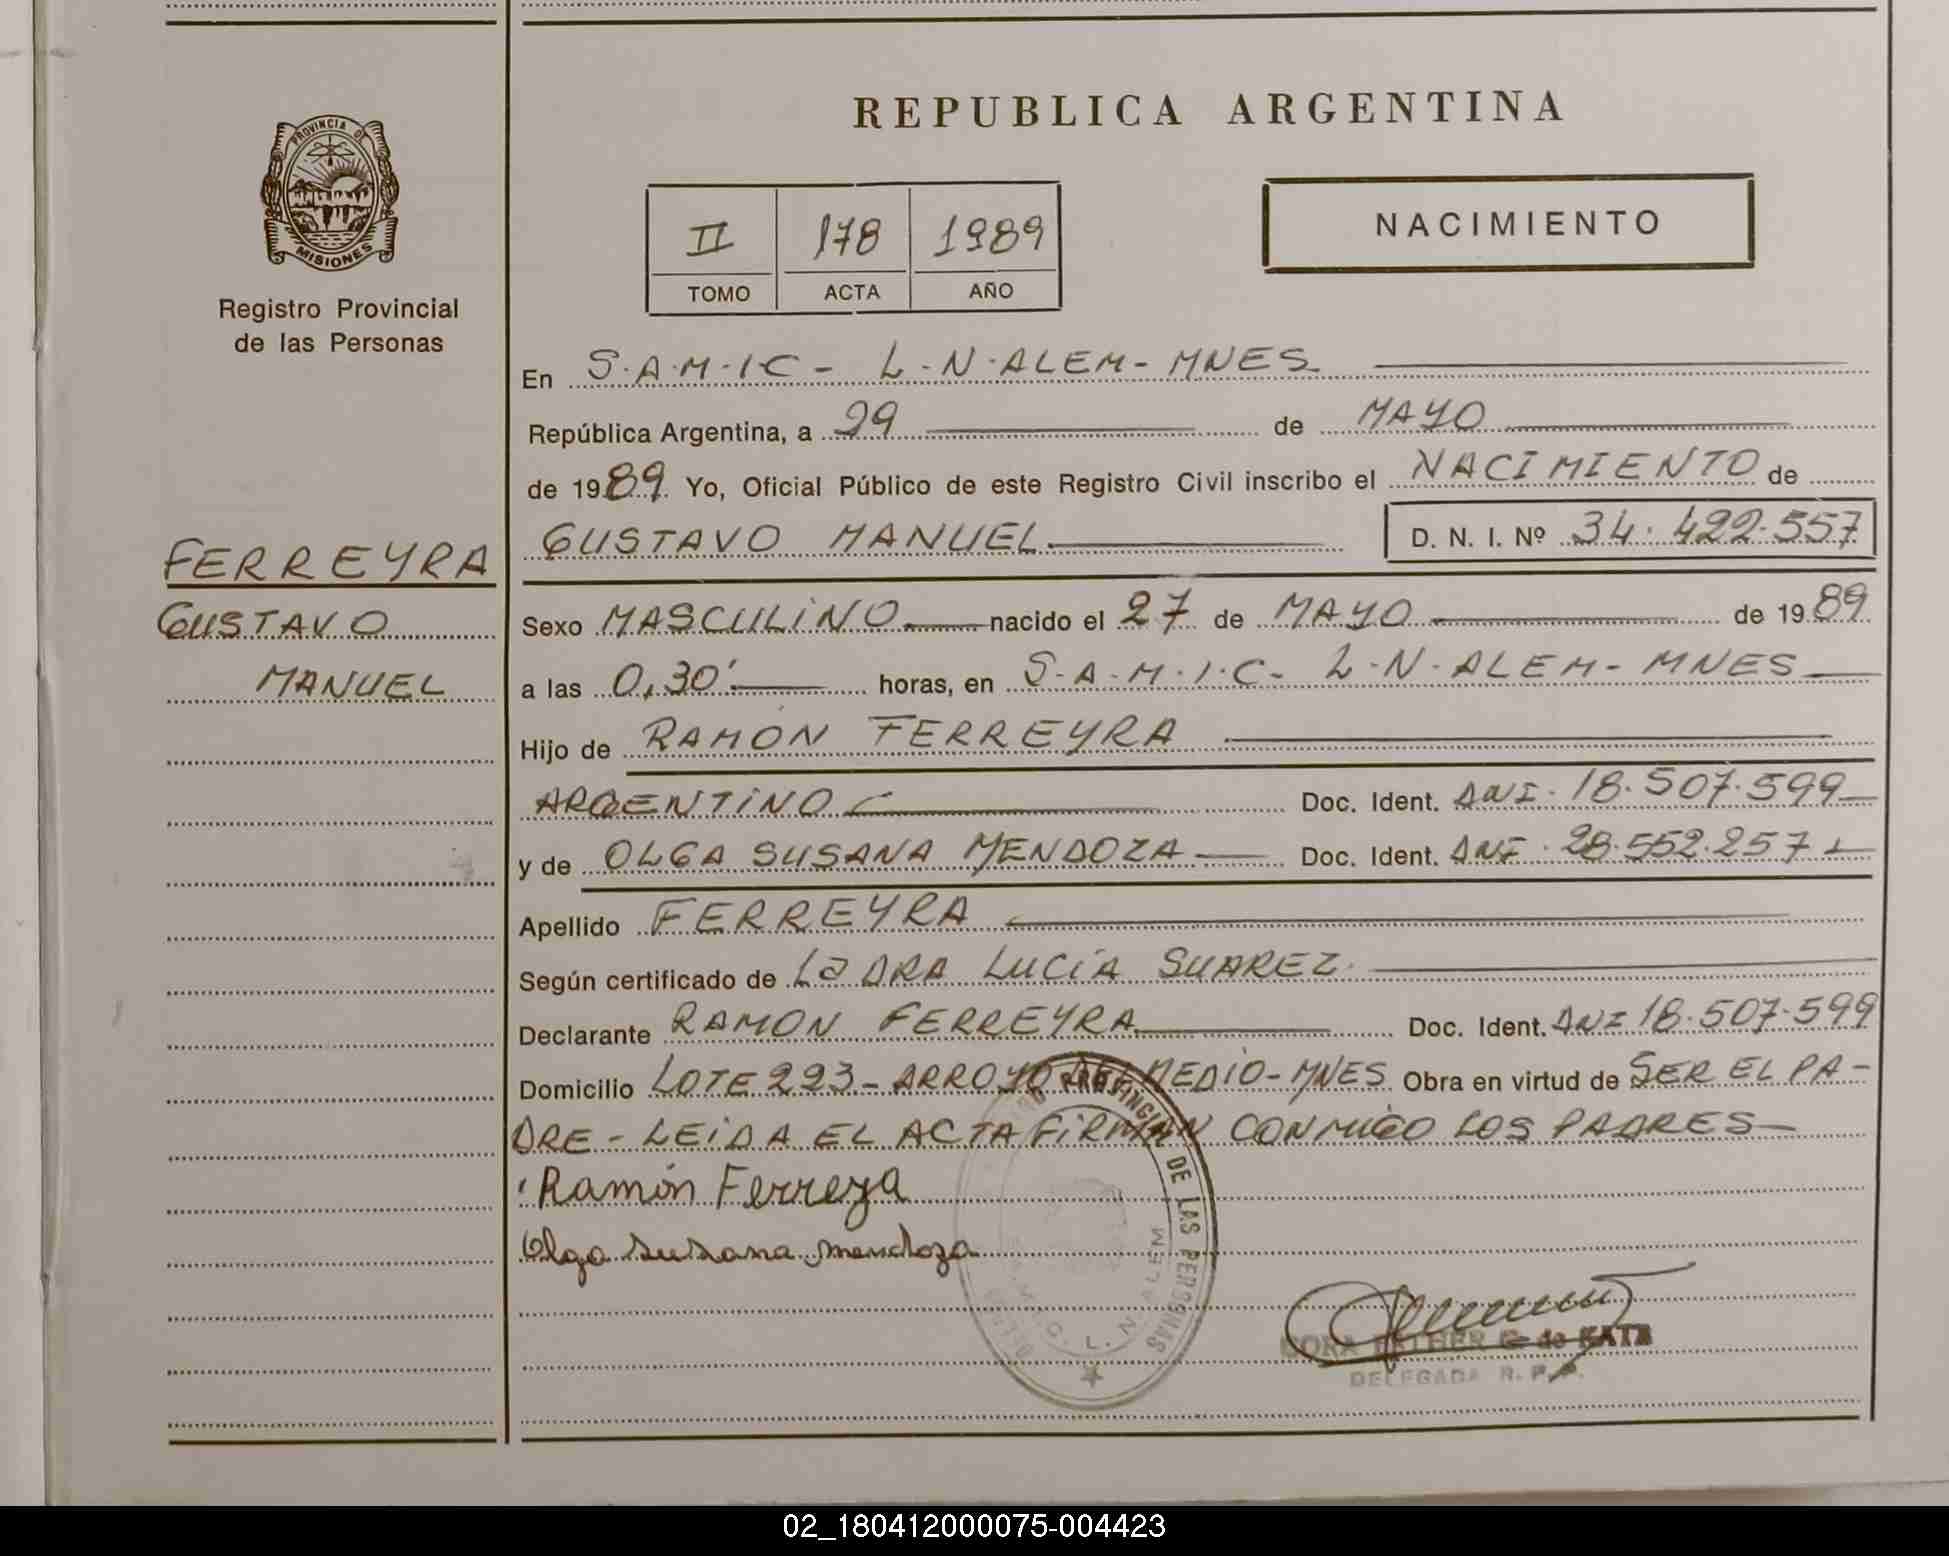 PROVINCIA DE
MISIONES
Registro Provincial
de las Personas
FERREYRA
GUSTAVO
MANUEL
REPUBLICA ARGENTINA
II 178 1989
TOMO ACTA AÑO
NACIMIENTO
En S.A.M.I.C - L.N.ALEM - MNES
República Argentina, a 29 de MAYO
de 1989. Yo, Oficial Público de este Registro Civil inscribo el NACIMIENTO de
GUSTAVO MANUEL D. N. I. Nº 34.422.557
Sexo MASCULINO nacido el 27 de MAYO de 1989
a las 0,30' horas, en S.A.M.I.C - L.N.ALEM - MNES
Hijo de RAMÓN FERREYRA
ARGENTINO Doc. Ident. DNI. 18.507.599
y de OLGA SUSANA MENDOZA Doc. Ident. DNI. 28.552.257
Apellido FERREYRA
Según certificado de La DRA LUCÍA SUAREZ.
Declarante RAMON FERREYRA Doc. Ident. DNI 18.507.599
Domicilio LOTE 223 - ARROYO DEL MEDIO - MNES Obra en virtud de SER EL PA-
DRE - LEIDA EL ACTA FIRMAN CONMIGO LOS PADRES
Ramón Ferreya
Olga Susana Mendoza
PROVINCIAL DE LAS PERSONAS
S.A.M.I.C. L. N. ALEM
ESTHER G. de KATZ
DELEGADA R. P. P.
02_180412000075-004423